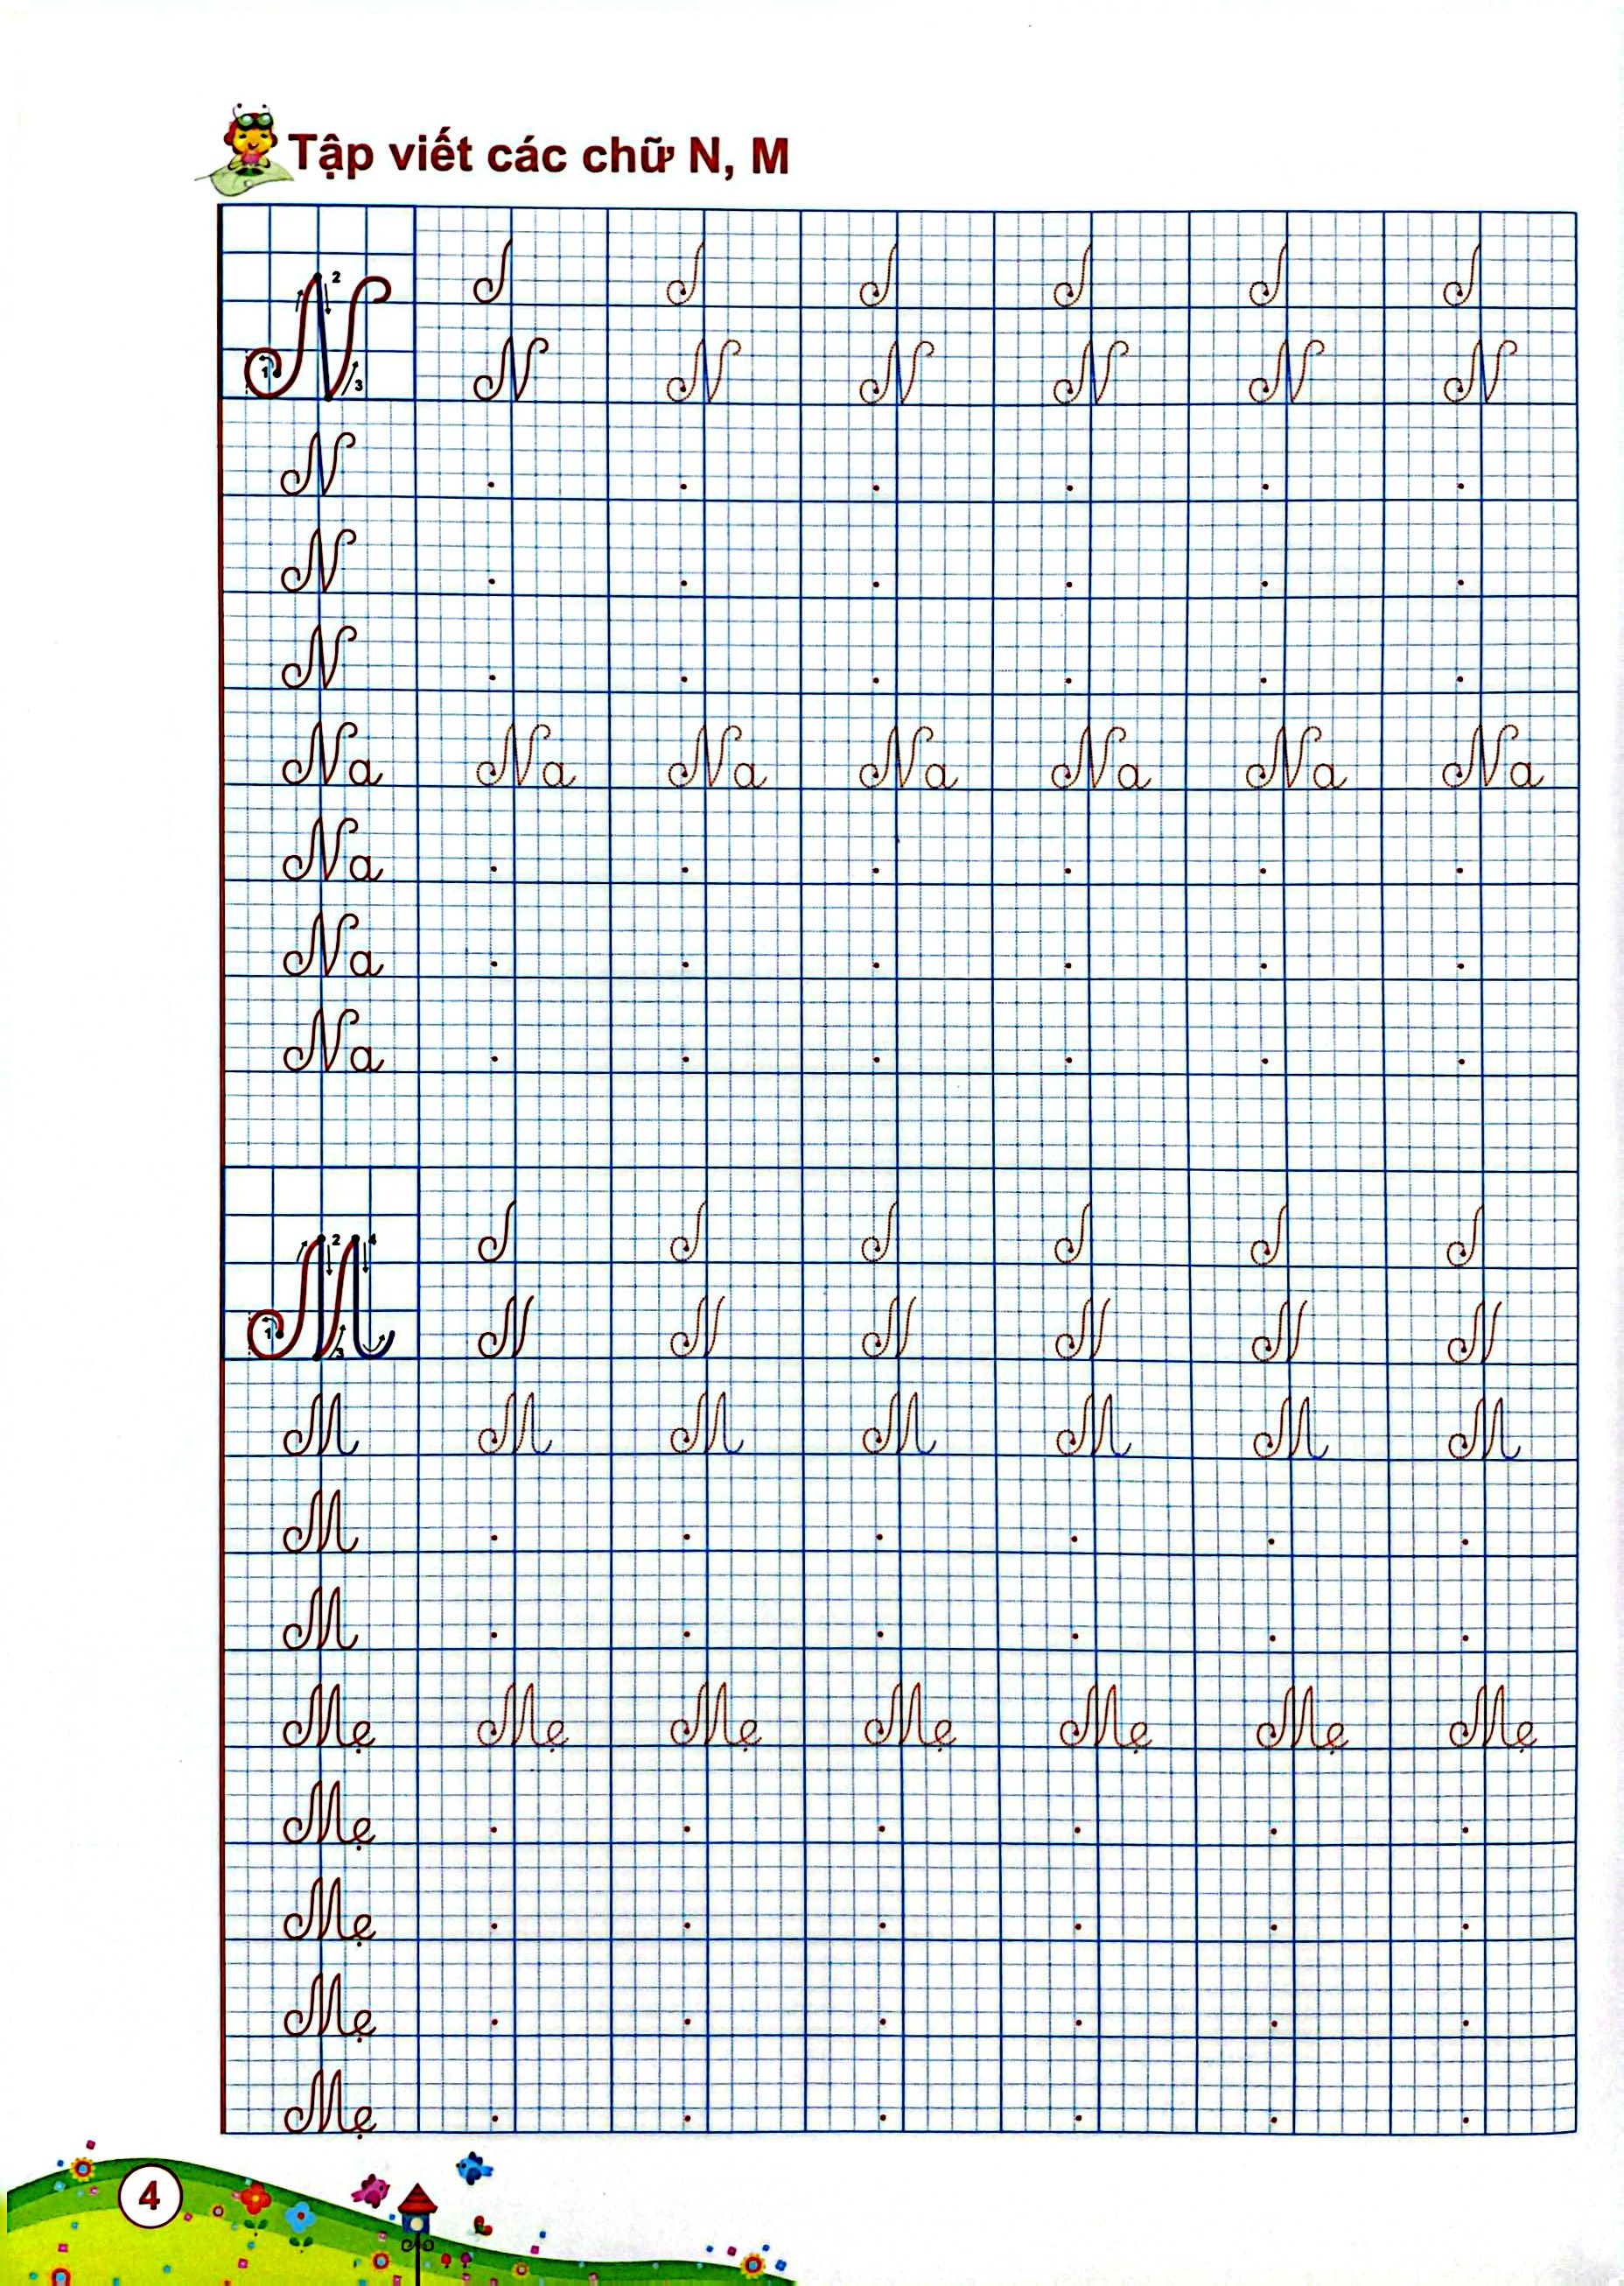 Tập viết các chữ N, M
N 1 2 3
N N N N N N
N
N
N
Na Na Na Na Na Na Na
Na
Na
Na
M 1 2 3 4
M M M M M M M
M
M
Mẹ Mẹ Mẹ Mẹ Mẹ Mẹ Mẹ
Mẹ
Mẹ
Mẹ
Mẹ
4